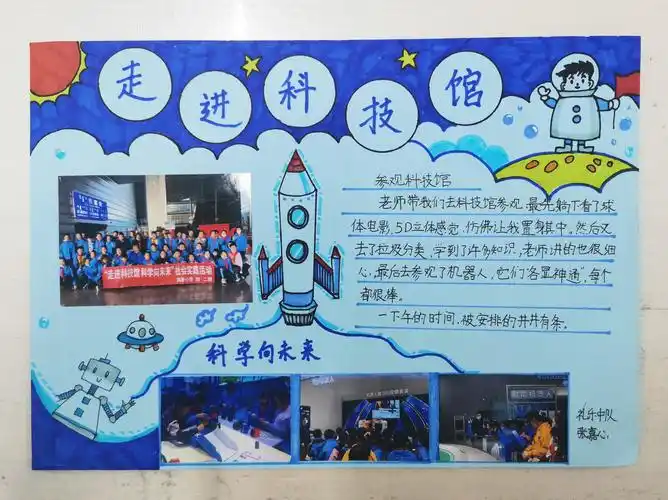 走进科技馆
参观科技馆
老师带我们去科技馆参观,最先躺下看了球
体电影,5D立体感觉,仿佛让我置身其中。然后又
去了垃圾分类,学到了许多知识,老师讲的也很细
心,最后去参观了机器人,它们“各显神通”,每个
都很棒。
一下午的时间,被安排的井井有条。
“走进科技馆 科学向未来”社会实践活动
科学向未来
礼乐中队
张嘉心